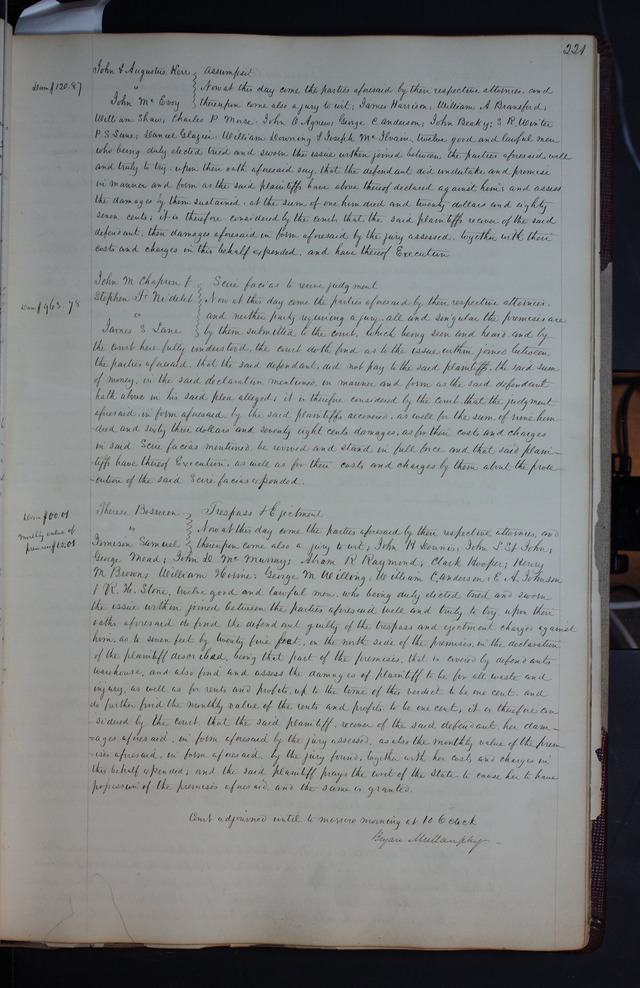 221
John & Augustus Kerr } Assumpsit
Dam $120.87
" } Now at this day come the parties aforesaid by their respective attornies, and
John Mc Evoy } thereupon come also a jury to wit; James Harrison; William A Bransford;
William Shaw; Charles P Morse; John O Agnew; George C anderson; John Beaky; S R. Winter
P S Lane; Daniel Glazier; William Downing & Joseph Mc Ilvain, twelve good and lawful men
who being duly elected tried and sworn the issue within joined between the parties aforesaid, well
and truly to try, upon their oath aforesaid say, that the defendant did undertake and promise
in manner and form as the said plaintiffs have above thereof declared against him; and assess
the damages by them sustained, at the sum of one hundred and twenty dollars and eighty
seven cents; it is therefore considered by the court, that the said plaintiffs recover of the said
defendant, their damages aforesaid in form aforesaid by the jury assessed, together with their
costs and charges in this behalf expended, and have thereof Execution
John M Chapron & } Scire facias to revive judgment
Stephen F. Nidelet } Now at this day come the parties aforesaid by their respective attornies,
Dam $963.78
" } and neither party requiring a jury, all and singular the premises are
James S Lane } by them submitted to the court, which being seen and heard and by
the court here fully understood, the court doth find as to the issue within joined between
the parties aforesaid, that the said defendant, did not pay to the said plaintiffs, the said sum
of money, in the said declaration mentioned, in manner and form as the said defendant
hath above in his said plea alleged; it is therefore considered by the court that the judgment
aforesaid in form aforesaid, by the said plaintiffs recovered, as well for the sum of nine hun
dred and sixty three dollars and seventy eight cents damages, as for their costs and charges
in said Scire facias mentioned, be revived and stand in full force and that said plain-
tiffs have thereof Execution, as well as for their costs and charges by them about the prose-
cution of the said Scire facias expended.
Therese } Trespass & Ejectment
Dam $00.01
" } Now at this day come the parties aforesaid by their respective attornies, and
monthly value of
premises $00.01
Samuel } thereupon come also a jury to wit; John H Dennis; John S. St John;
George Mead; John D. Mc Murray; Abram R Raymond; Clark Hooper; Henry
M Brown; William Horine; George M Willing; William C anderson; E. A. Johnson
& R. H. Stone, twelve good and lawful men, who being duly elected tried and sworn
the issue within joined between the parties aforesaid well and truly to try, upon their
oaths aforesaid do find the defendant guilty of the trespass and ejectment charged against
him, as to seven feet by twenty five feet, on the north side of the premises, in the declaration
of the plaintiff described, being that part of the premises, that is covered by defendants
warehouse, and also find and assess the damages of plaintiff to be for all waste and
injury, as well as for rents and profits, up to the time of this verdict to be one cent, and
do further find the monthly value of the rents and profits to be one cent; it is therefore con
sidered by the court that the said plaintiff, recover of the said defendant, her dam-
-ages aforesaid, in form aforesaid by the jury assessed, as also the monthly value of the prem
-ises aforesaid, in form aforesaid, by the jury found, together with her costs and charges in
this behalf expended; and the said plaintiff prays the writ of the State to cause her to have
possession of the premises aforesaid, and the same is granted.
Court adjourned until to morrow morning at 10 O'clock
Bryan Mullanphy